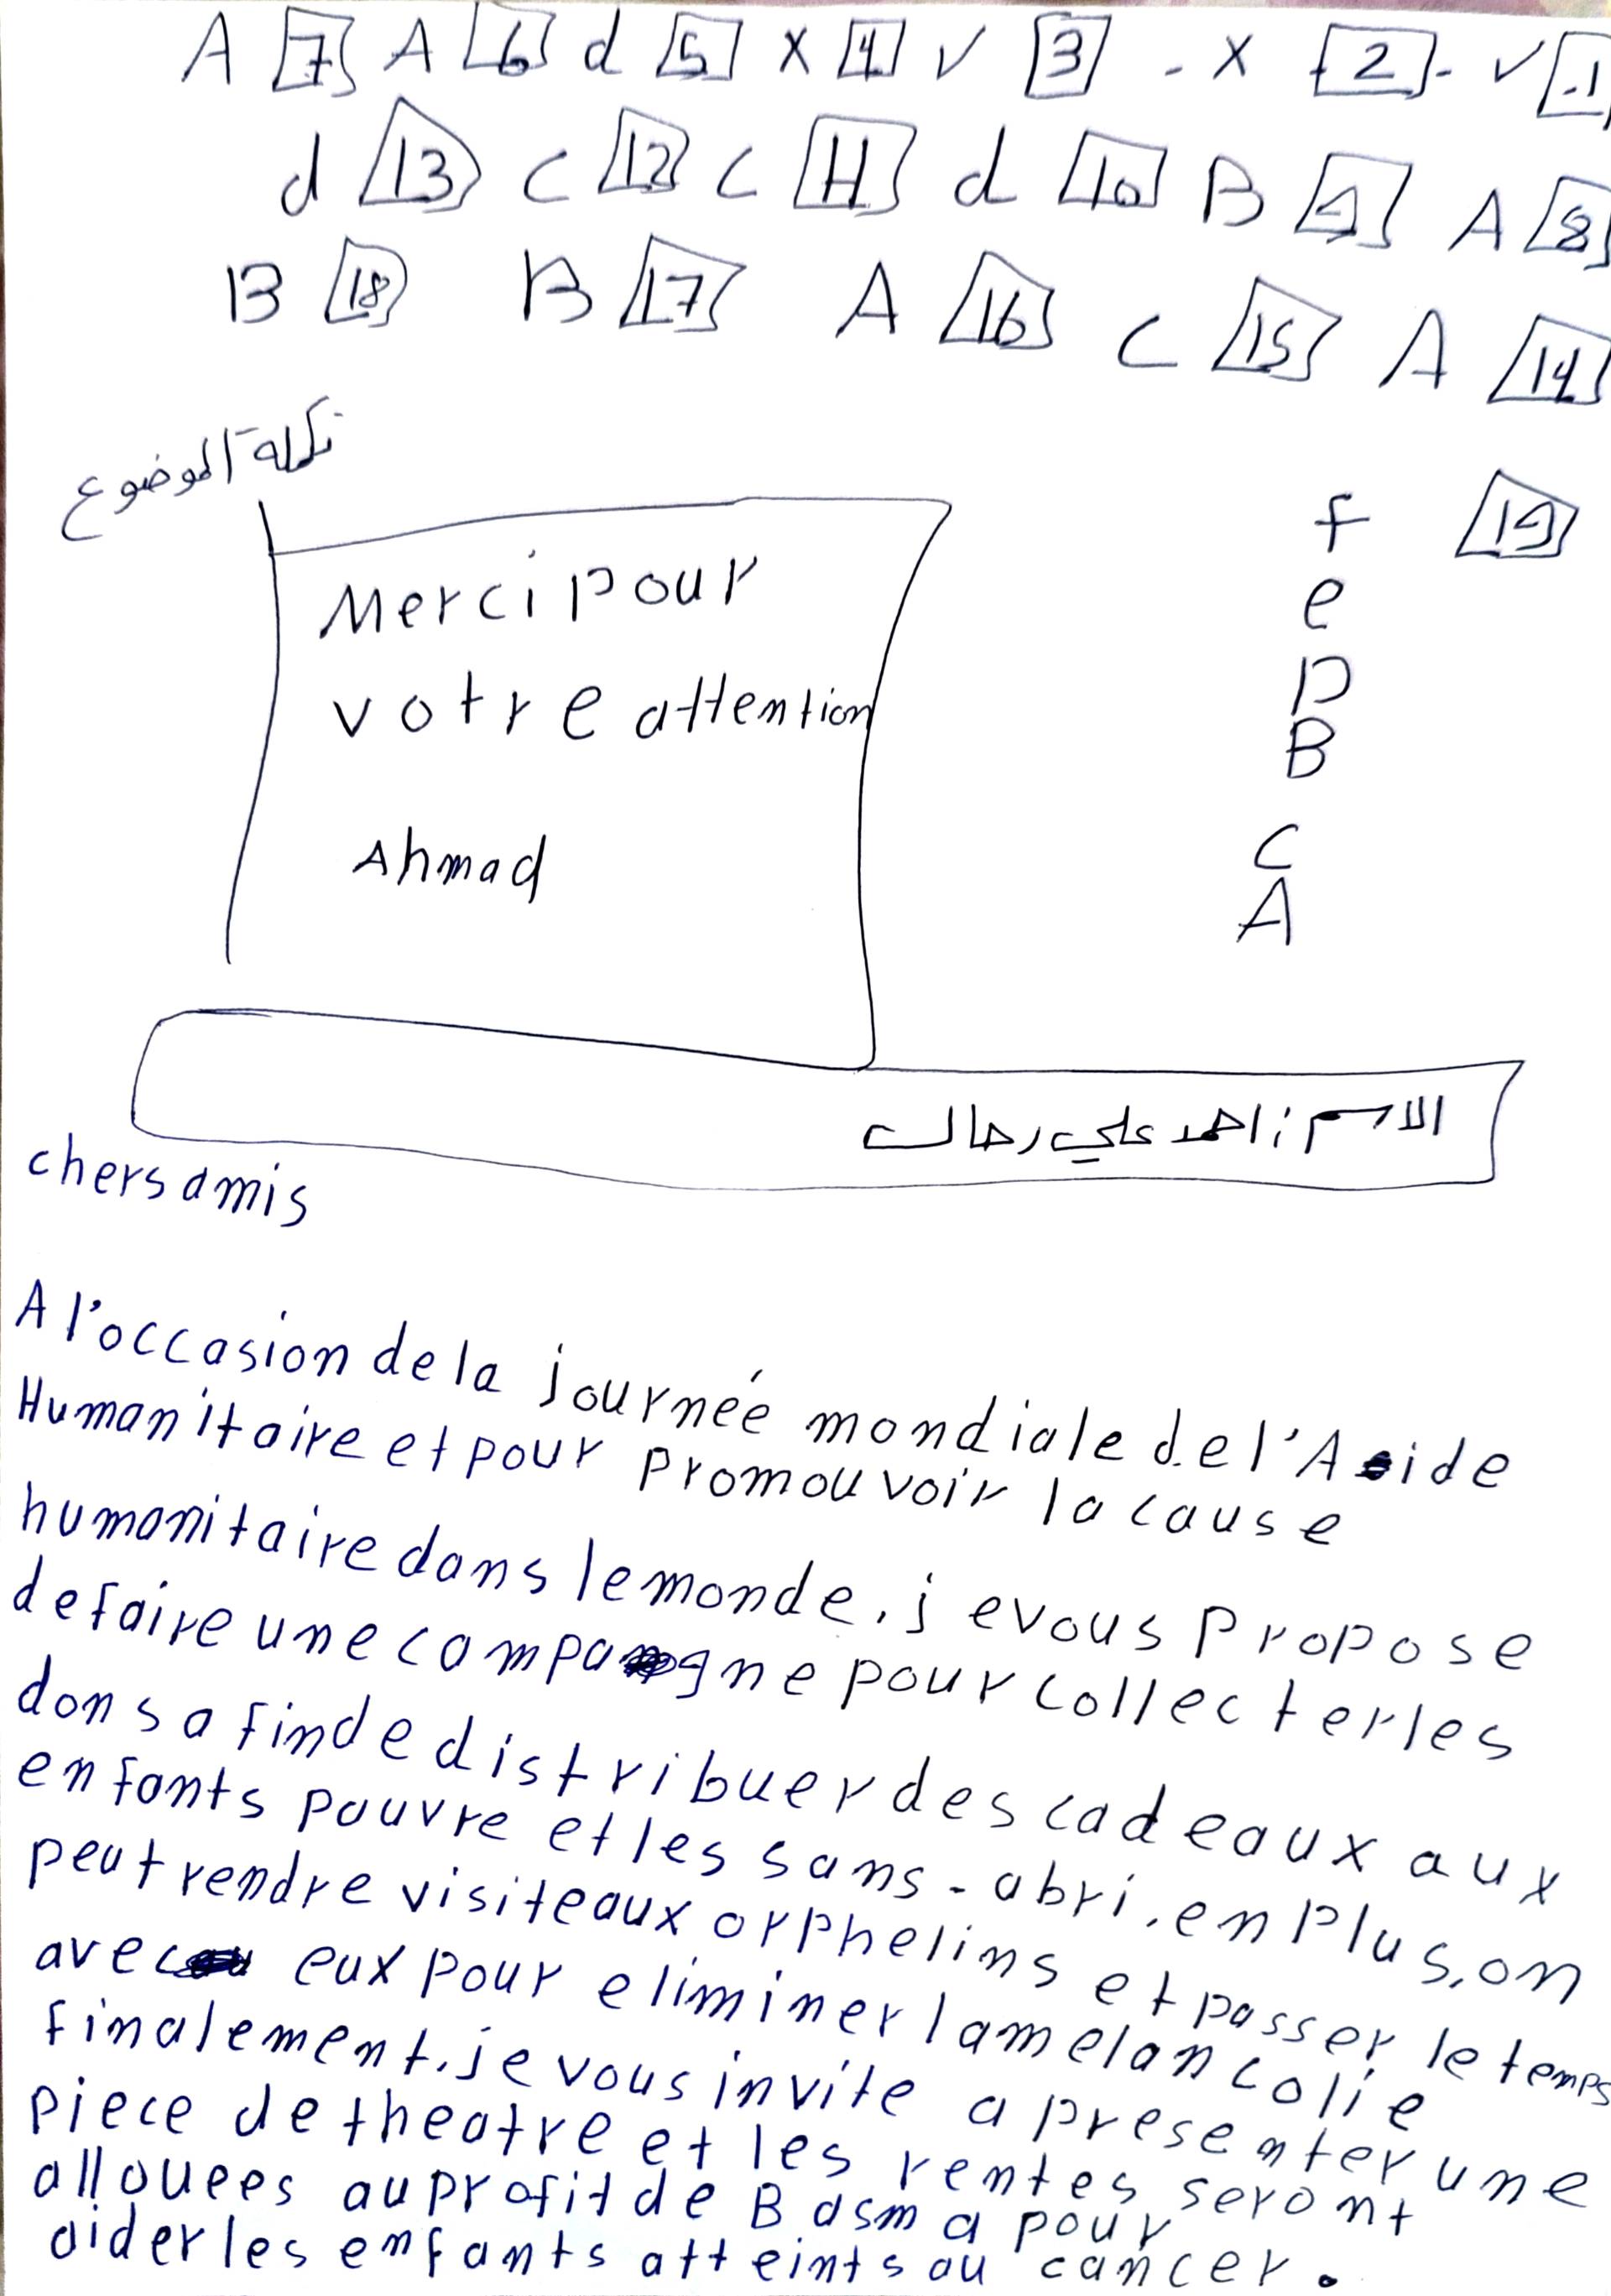 A 7 A 6 d 5 x 4 ✓ 3 - x 2 - ✓ 1
d 13 c 12 c 11 d 10 B 9 A 8
B 18 B 17 A 16 c 15 A 14
تكملة الموضوع
f 19
e
D
B
c
A
Merci pour
votre attention
Ahmad
الاسم: احمد علي رحال
chers amis
A l'occasion de la journée mondiale de l'Aide
Humanitaire et pour promouvoir la cause
humanitaire dans le monde, je vous propose
de faire une compagne pour collecter les
dons a fin de distribuer des cadeaux aux
enfants pauvre et les sans-abri, en plus, on
peut rendre visite aux orphelins et passer le temps
avec eux pour eliminer la melancolie
finalement, je vous invite a presenter une
piece de theatre et les rentes seront
allouees au profit de Basma pour
aider les enfants atteints au cancer.